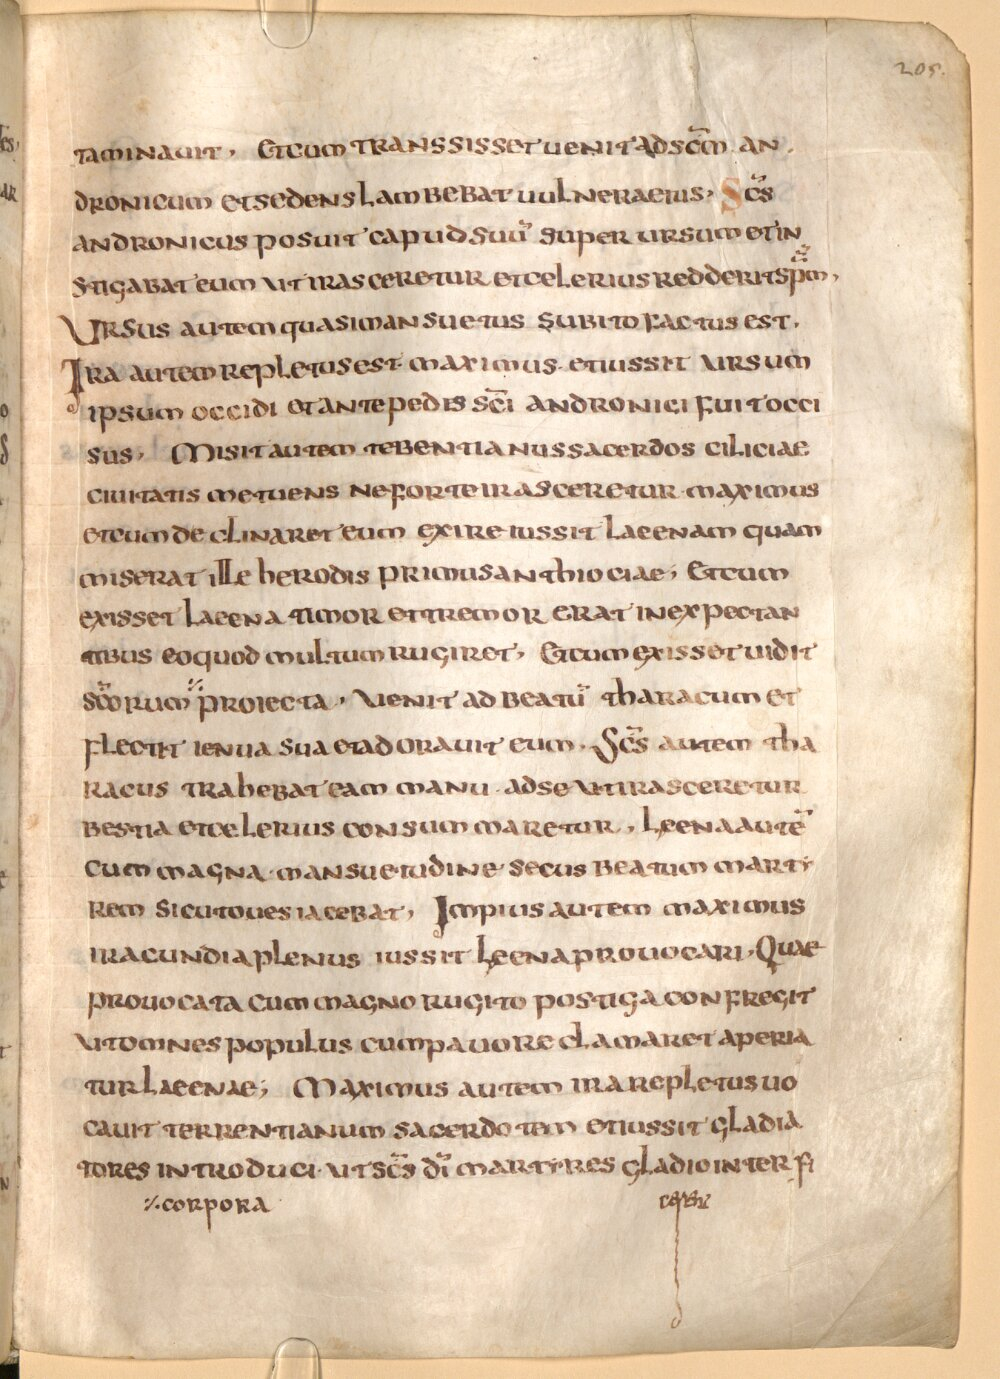 205.
taminauit, Etcum transsisset uenit ad sc̄m an
dronicum et sedens lambebat uulnera eius, Sc̄s
andronicus posuit capud suū super ursum et in
stigabat eum ut irasceretur et celerius redderit sp̄m,
Ursus autem quasi mansuetus subito factus est.
Ira autem repletus est maximus et iussit ursum
ipsum occidi et ante pedes sc̄i andronici fuit occi
sus, Misit autem tebentianus sacerdos ciliciae
ciuitatis metuens ne forte irasceretur maximus
et cum declinaret eum exire iussit laeenam quam
miserat ille herodis primus anthiociae; Et cum
exisset laeena timor et tremor erat in expectan
tibus eo quod multum rugiret, Et cum exisset uidit
sc̄orum ⁒ proiecta, Uenit ad beatū tharacum et
flectit ienua sua et adorauit eum, Sc̄s autem tha
racus trahebat eam manu ad se ut irasceretur
bestia et celerius consummaretur, Leena autē
cum magna mansuetudine secus beatum marty
rem sicut oues iacebat, Impius autem maximus
iracundia plenus iussit leena prouocari, Quae
prouocata cum magno rugito postiga confregit
Ut omnes populus cum pauore clamaret aperia
tur laeenae; Maximus autem ira repletus uo
cauit terrentianum sacerdotem et iussit gladia
tores introduci ut sc̄s dī martyres gladio interfi
⁒ corpora